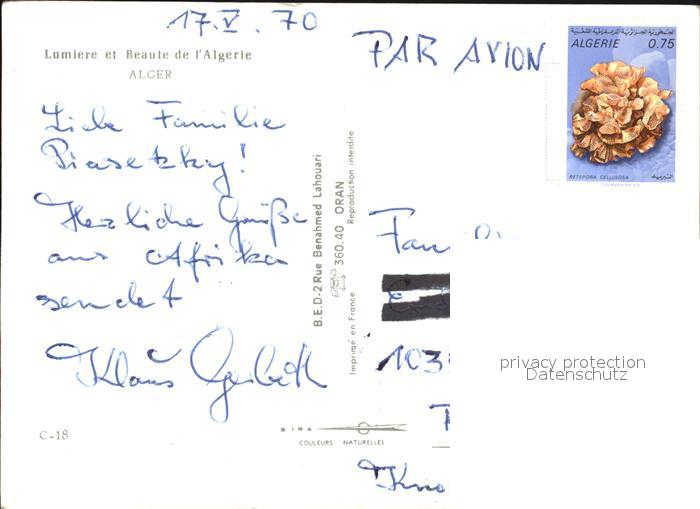 17.V.70
Lumiere et Beaute de l'Algerie
ALGER
PAR AVION
الجمهورية الجزائرية الديمقراطية الشعبية
ALGERIE 0.75
RETEPORA CELLULOSA
COURVOISIER S.A.
Liebe Familie
Piasetzky!
Herzliche Grüße
aus Afrika
sendet
Klaus
B.E.D-2 Rue Benahmed Lahouari
360.40 ORAN
Reproduction interdite
Imprimé en France
Fam
103
privacy protection
Datenschutz
C-18
SIRA
COULEURS NATURELLES